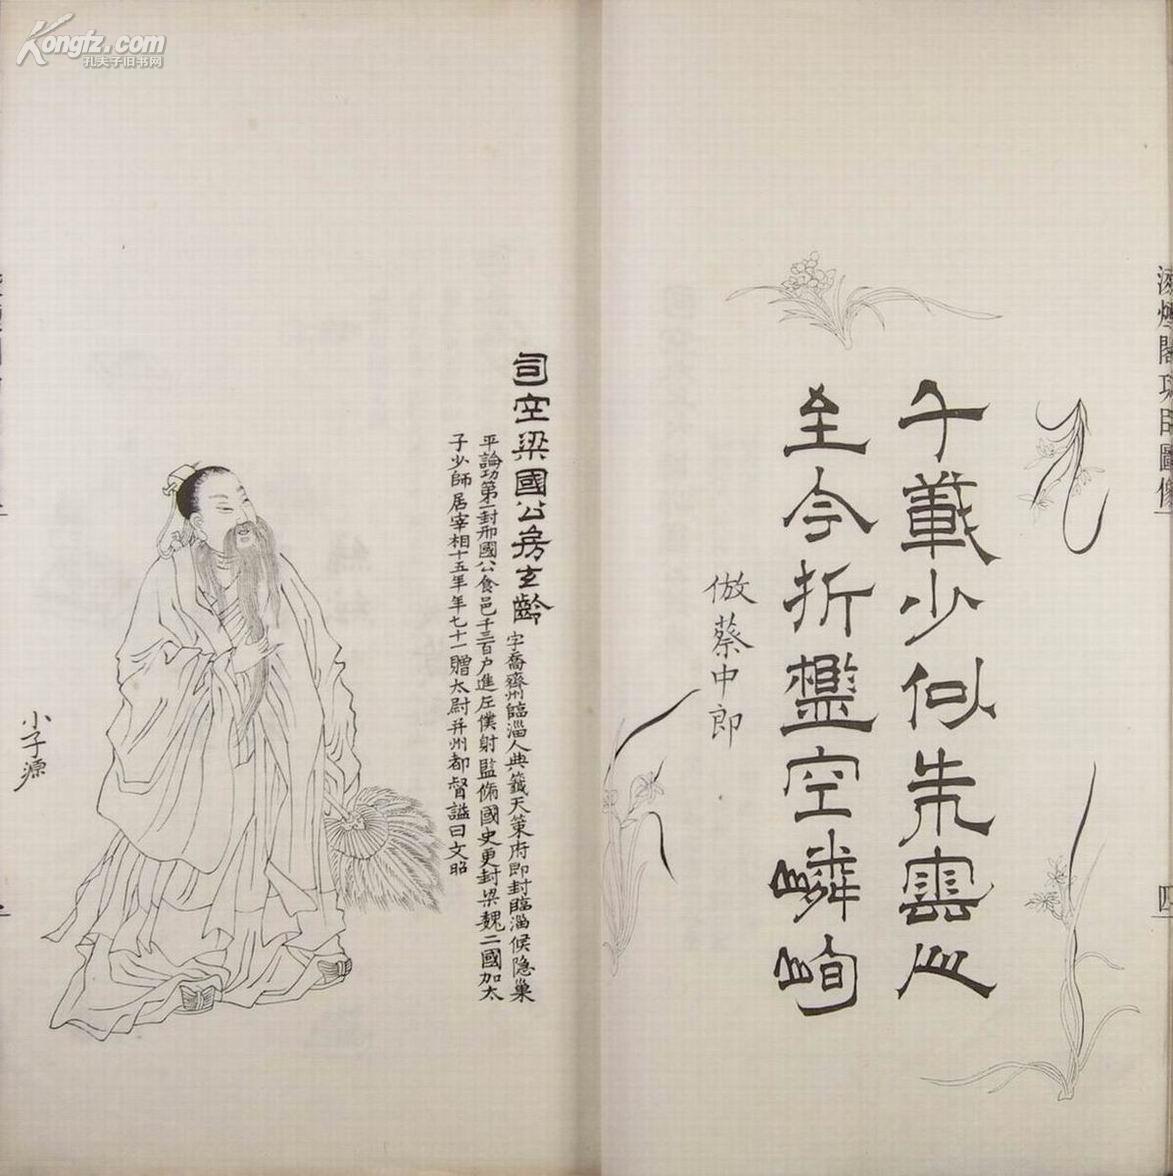 Kongfz.com
孔夫子旧书网
凌煙閣功臣圖像
四
千載少似朱雲人
至今折檻空嶙峋
倣蔡中郎
司空梁國公房玄齡
字喬齊州臨淄人典籤天策府即封臨淄候隐巢
平論功第一封邢國公食邑千三百户進左僕射監脩國史更封梁魏二國加太
子少師居宰相十五年年七十一贈太尉并州都督謚曰文昭
小子源